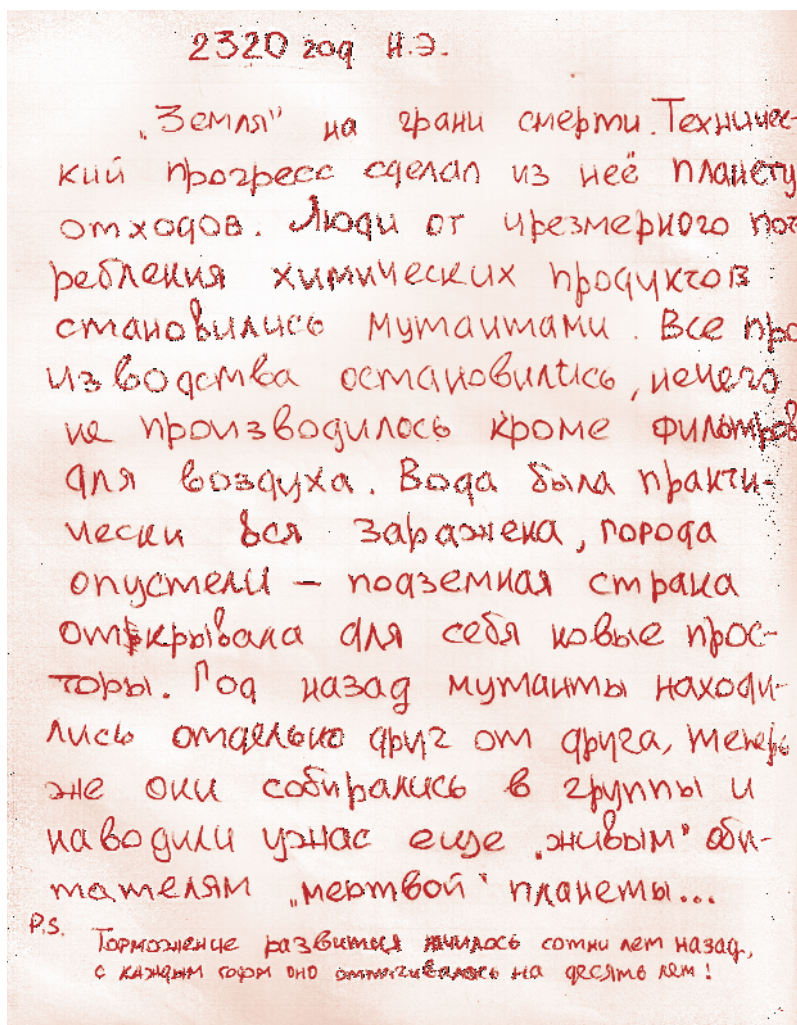 2320 год Н.Э.
„Земля" на грани смерти. Техничес-
кий прогресс сделал из неё планету
отходов. Люди от чрезмерного пот
ребления химических продуктов
становились мутантами. Все про
изводства остановились, нечего
не производилось кроме фильтров
для воздуха. Вода была практи-
чески вся заражена, города
опустели – подземная страна
открывала для себя новые прос-
торы. Год назад мутанты находи-
лись отдельно друг от друга, теперь
же они собирались в группы и
наводили ужас еще „живым" оби-
тателям „мертвой" планеты...
P.S. Торможение развития лет назад,
с каждым годом оно оттягивалось на десять лет!